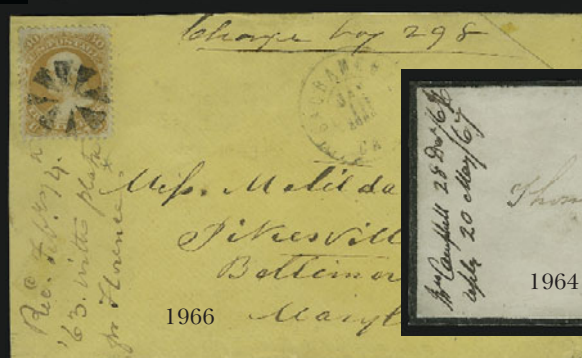 Charge box 298
SACRAMENTO
JAN
CAL
Miss. Matilda
Pikesvill
Baltimor
Maryl
Rec. Feby 14.
'63. with plate
for Florence.
1966
Wm Campbell 28 Dec/66
reply 20 May/67
Thom
1964